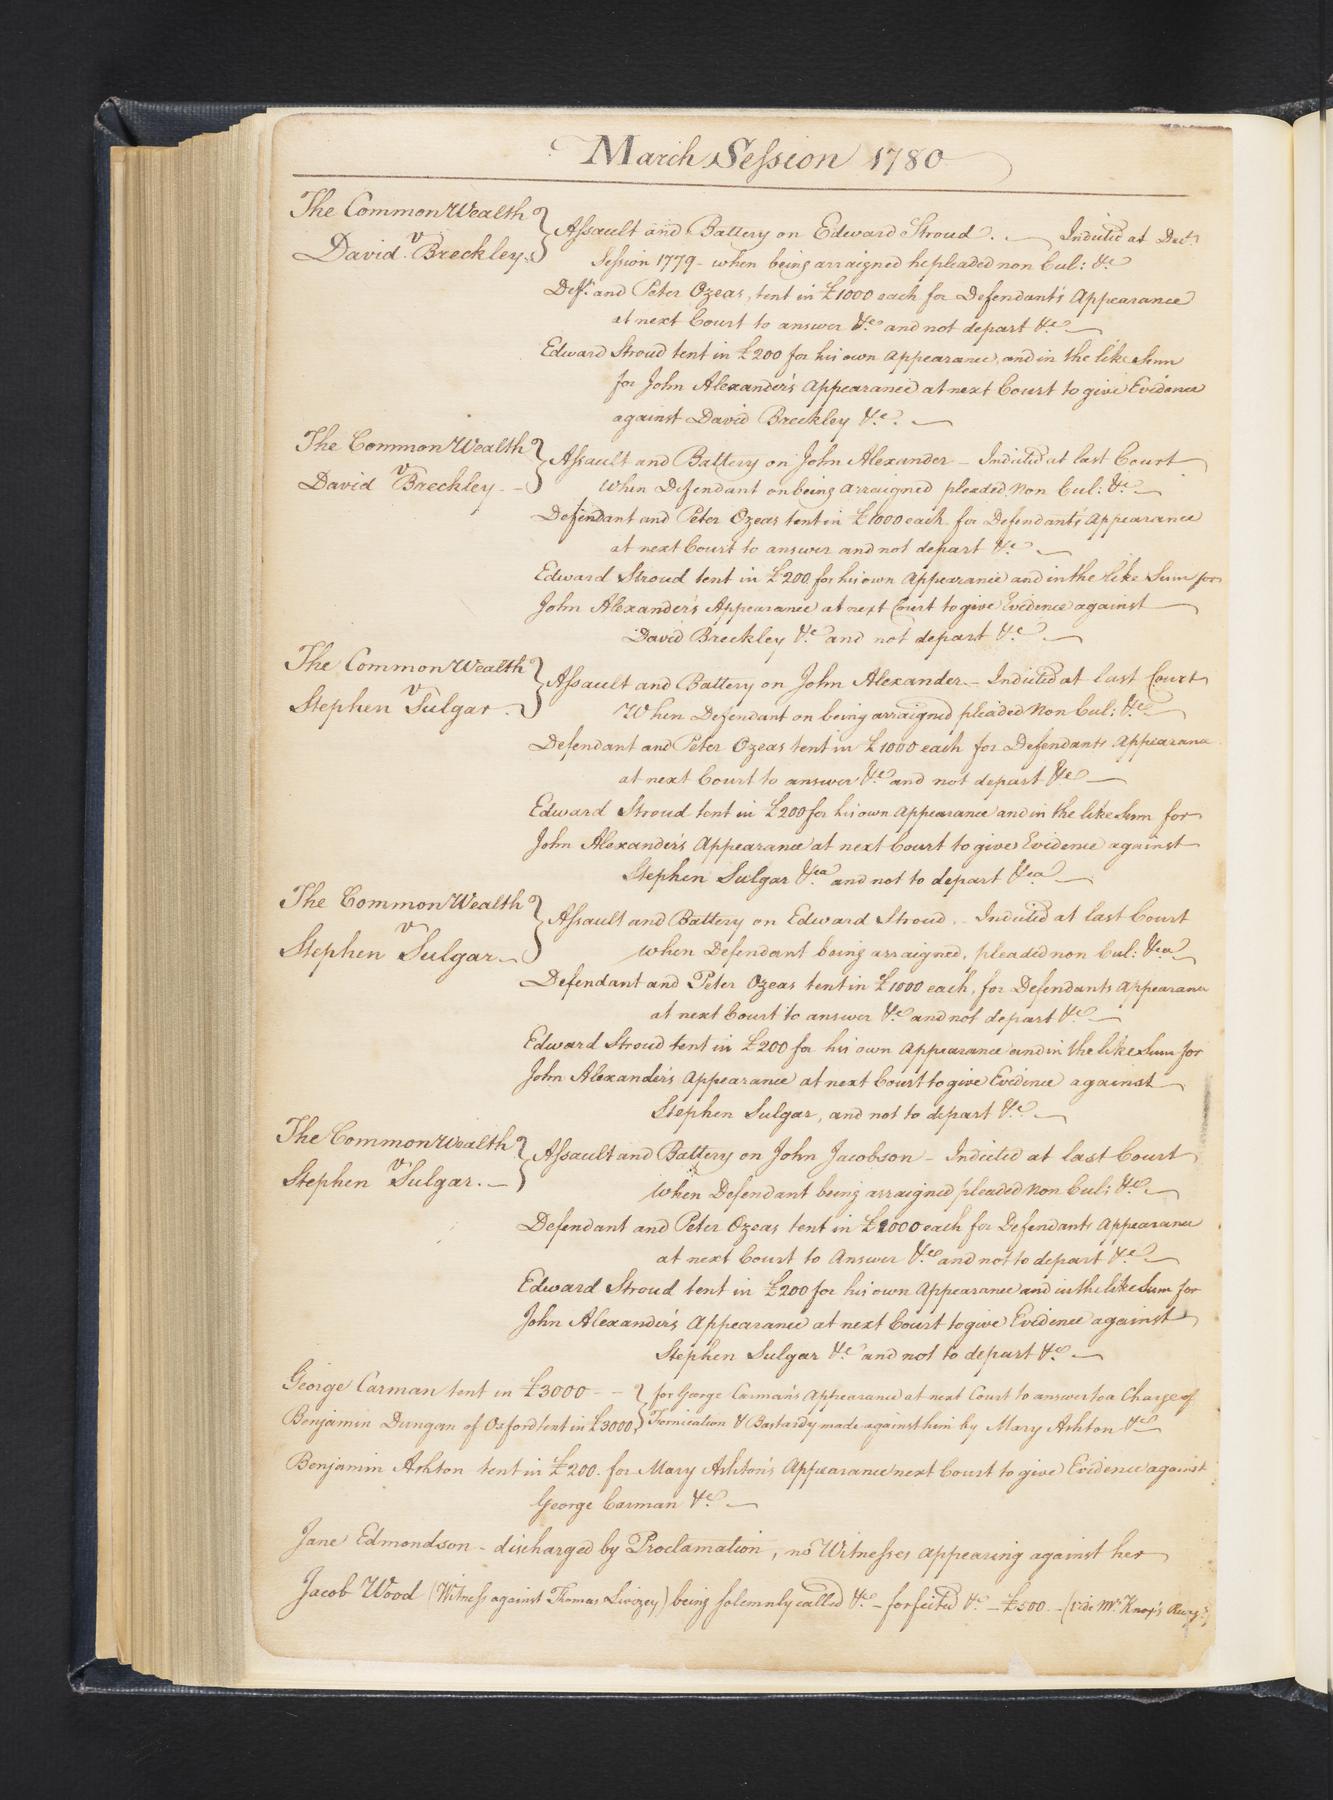 March Session 1780
The CommonWealth
v
David Breckley.
Assault and Battery on Edward Stroud. Indicted at Decr.
Session 1779 - when being arraigned he pleaded non Cul: &c
Deft. and Peter Ozeas, tent in £1000 each for Defendant's Appearance
at next Court to answer &c and not depart &c
Edward Stroud tent in £200 for his own Appearance, and in the like Sum
for John Alexander's Appearance at next Court to give Evidence
against David Breckley &c.
The CommonWealth
v
David Breckley -
Assault and Battery on John Alexander - Indicted at last Court
When Defendant on being arraigned pleaded Non Cul: &c
Defendant and Peter Ozeas tent in £1000 each for Defendant's Appearance
at next Court to answer and not depart &c
Edward Stroud tent in £200 for his own Appearance and in the like Sum for
John Alexander's Appearance at next Court to give Evidence against
David Breckley &c and not depart &c
The CommonWealth
v
Stephen Sulgar.
Assault and Battery on John Alexander - Indicted at last Court
When Defendant on being arraigned pleaded Non Cul: &c
Defendant and Peter Ozeas tent in £1000 each for Defendants Appearance
at next Court to answer &c and not depart &c
Edward Stroud tent in £200 for his own Appearance and in the like Sum for
John Alexander's Appearance at next Court to give Evidence against
Stephen Sulgar &ca and not to depart &ca
The CommonWealth
v
Stephen Sulgar
Assault and Battery on Edward Stroud. - Indicted at last Court
when Defendant being arraigned, pleaded non Cul: &ca
Defendant and Peter Ozeas tent in £1000 each, for Defendants Appearance
at next Court to answer &c and not depart &c
Edward Stroud tent in £200 for his own Appearance and in the like Sum for
John Alexander's Appearance at next Court to give Evidence against
Stephen Sulgar, and not to depart &c
The CommonWealth
v
Stephen Sulgar. -
Assault and Battery on John Jacobson - Indicted at last Court
When Defendant being arraigned pleaded Non Cul: &c
Defendant and Peter Ozeas tent in £1000 each for Defendants Appearance
at next Court to Answer &c and not to depart &c
Edward Stroud tent in £200 for his own Appearance and in the like Sum for
John Alexander's Appearance at next Court to give Evidence against
Stephen Sulgar &c and not to depart &c
George Carman tent in £3000 - - for George Carman's Appearance at next Court to answer to a Charge of
Benjamin Dungan of Oxford tent in £3000, Fornication & Bastardy made against him by Mary Ashton &c
Benjamin Ashton tent in £200. for Mary Ashton's Appearance next Court to give Evidence against
George Carman &c
Jane Edmondson - discharged by Proclamation, no Witnesses appearing against her
Jacob Wood (Witness against Thomas Livezey) being solemnly called &c - forfeited &c - £500 - (vide Mr. Knox's